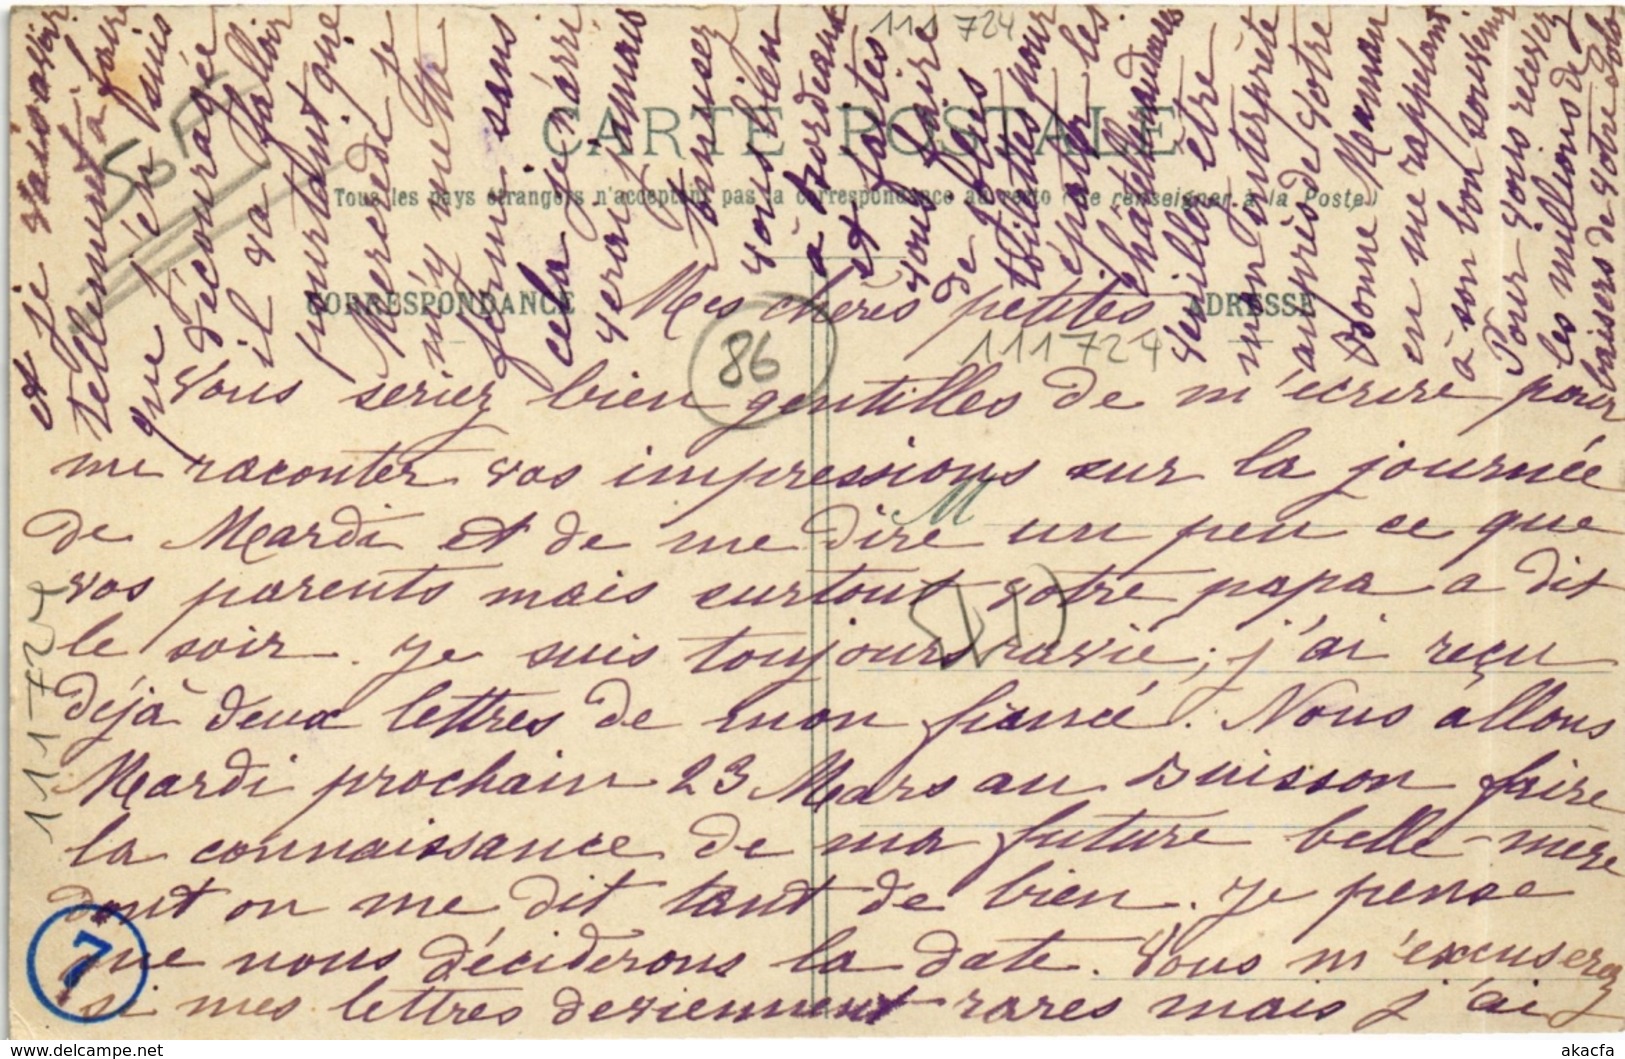 111 724
CARTE POSTALE
Tous les pays étrangers n'acceptent pas la correspondance au recto (Se renseigner à la Poste)
CORRESPONDANCE
ADRESSE
50 F
86
111724
111724
7
Mes chères petites
Vous seriez bien gentilles de m'écrire pour
me raconter vos impressions sur la journée
de Mardi et de me dire un peu ce que
vos parents mais surtout votre papa a dit
le soir. Je suis toujours ravie; j'ai reçu
déjà deux lettres de mon fiancé. Nous allons
Mardi prochain 23 Mars au Buisson faire
la connaissance de ma future belle-mère
dont on me dit tant de bien. Je pense
que nous déciderons la date. Vous m'excuserez
si mes lettres deviennent rares mais j'ai
et je vais avoir
tellement à faire
que j'en suis
découragée
il va falloir
pourtant que
Mercredi je
m'y mette
ferme sans
cela je n'arri
verai jamais
Amusez
vous bien
à Bordeaux
et faites
vous faire
de jolies
toilettes pour
épater les
châtelleraudais
Veuillez être
mon interprète
auprès de votre
Bonne Maman
en me rappelant
à son bon souvenir
Pour vous recevez
les millions de
baisers de votre Lolo